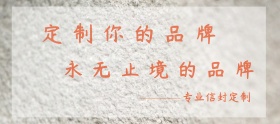 定制你的品牌
永无止境的品牌
——专业信封定制